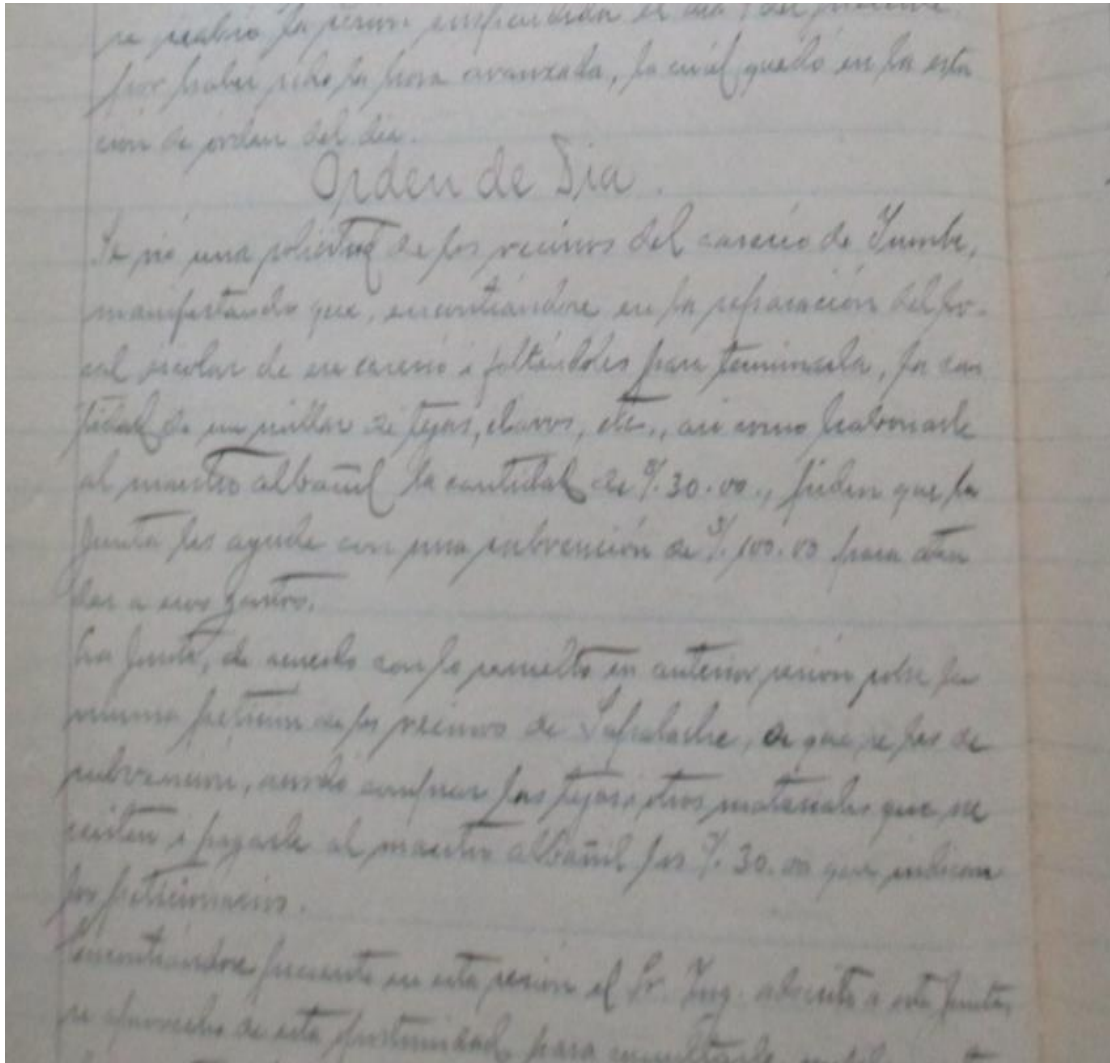 se reabrió la sesión suspendida el día 1 del presente
por haber sido la hora avanzada, la cuál quedó en la esta
ción de órden del día.
Orden de Dia.
Se vió una solicitud de los vecinos del caserío de
manifestando que, encontrándose en la reparación del lo-
cal escolar de ese caserío i faltándoles para terminarla, la can
tidad de un millar de tejas, clavos, etc., asi como habonarle
al maestro albañil la cantidad de S/. 30.00., piden que la
Junta les ayude con una subvención de S/. 100.00 para aten
der a esos gastos.
La Junta, de acuerdo con lo resuelto en anterior sesión sobre la
misma petición de los vecinos de de que se les de
subvención, acordó comprar las tejas i otros materiales que ne
cesiten i pagarle al maestro albañil los S/. 30.00 que indican
los peticionarios.
Encontrándose presente en esta sesión el Sr. Ing. adscrito a esta Junta,
se aprovechó de esta oportunidad para consultarle